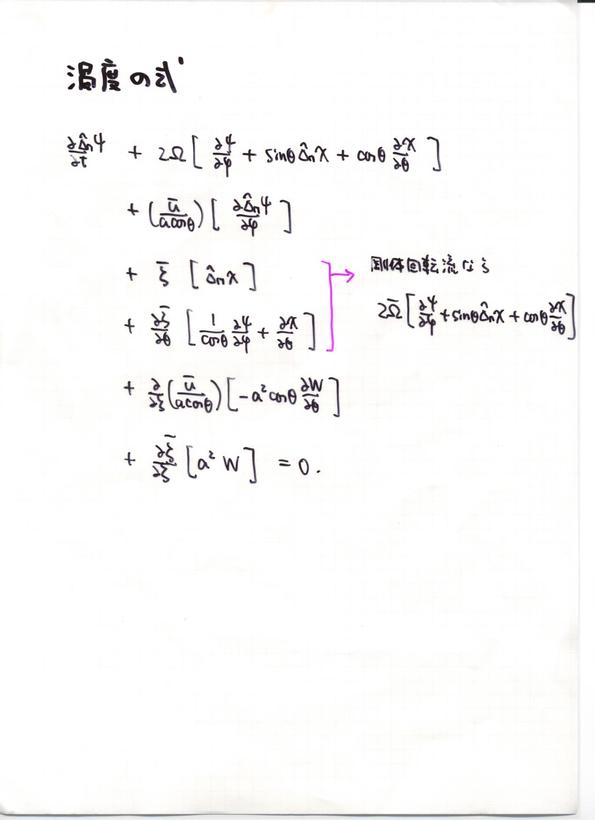 渦度の式
∂Δ̂ₕψ/∂t + 2Ω[ ∂ψ/∂φ + sinθ Δ̂ₕχ + cosθ ∂χ/∂θ ]
+ (ū/a cosθ)[ ∂Δ̂ₕψ/∂φ ]
+ ξ̄ [ Δ̂ₕχ ]
+ ∂ξ̄/∂θ [ 1/cosθ ∂ψ/∂φ + ∂χ/∂θ ]
剛体回転流なら
2Ω̄[ ∂ψ/∂φ + sinθ Δ̂ₕχ + cosθ ∂χ/∂θ ]
+ ∂/∂ξ (ū/a cosθ)[ -a² cosθ ∂W/∂θ ]
+ ∂ξ̄/∂ξ [ a² W ] = 0.